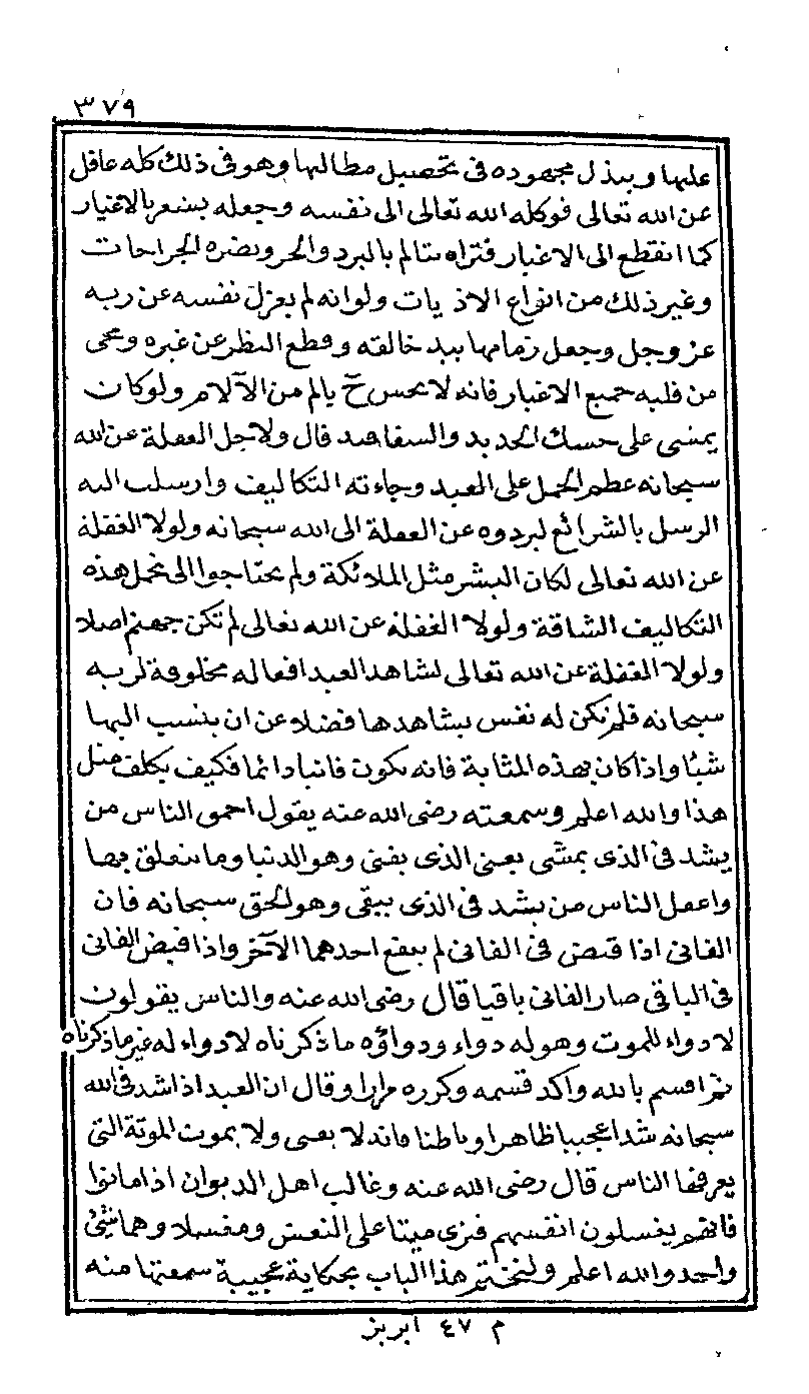 ٣٧٩
عليها ويبذل مجهوده فى تحصيل مطالبها وهو فى ذلك كله غافل
عن الله تعالى فوكله الله تعالى الى نفسه وجعله يشعر بالاغيار
كما انقطع الى الاغيار فتراه يتالم بالبرد والحر وتضره الجراحات
وغير ذلك من انواع الاذيات ولو انه لم يعزل نفسه عن ربه
عز وجل وجعل زمامها بيد خالقه وقطع النظر عن غيره ومحى
من قلبه جميع الاغيار فانه لا يحس ح بالم من الآلام ولو كان
يمشى على حسك الحديد والسفافيد قال ولاجل الغفلة عن الله
سبحانه عظم الحمل على العبد وجاءته التكاليف وارسلت اليه
الرسل بالشرائع ليردوه عن الغفلة الى الله سبحانه ولولا الغفلة
عن الله تعالى لكان البشر مثل الملائكة ولم يحتاجوا الى تحمل هذه
التكاليف الشاقة ولولا الغفلة عن الله تعالى لم تكن جهنم اصلا
ولولا الغفلة عن الله تعالى لشاهد العبد افعاله مخلوقة لربه
سبحانه فلم تكن له نفس يشاهدها فضلا عن ان ينسب اليها
شيئا واذا كان بهذه المثابة فانه يكون فانيا دائما فكيف يكلف مثل
هذا والله اعلم وسمعته رضى الله عنه يقول احمق الناس من
يشد فى الذى يمشى يعنى الذى يفنى وهو الدنيا وما يتعلق بها
واعقل الناس من يشد فى الذى يبقى وهو الحق سبحانه فان
الفانى اذا قبض فى الفانى لم ينفع احدهما الآخر واذا قبض الفانى
فى الباقى صار الفانى باقيا قال رضى الله عنه والناس يقولون
لا دواء للموت وهو له دواء ودواؤه ما ذكرناه لا دواء له غير ما ذكرناه
ثم اقسم بالله واكد قسمه وكرره مرارا وقال ان العبد اذا شد فى الله
سبحانه شدا عجيبا ظاهرا وباطنا فانه لا يفنى ولا يموت الموتة التى
يعرفها الناس قال رضى الله عنه وغالب اهل الديوان اذا ماتوا
فانهم يغسلون انفسهم فترى ميتا على النعش ومغسلا وهما شئ
واحد والله اعلم ولنختم هذا الباب بحكاية عجيبة سمعتها منه
م ٤٧ ابريز